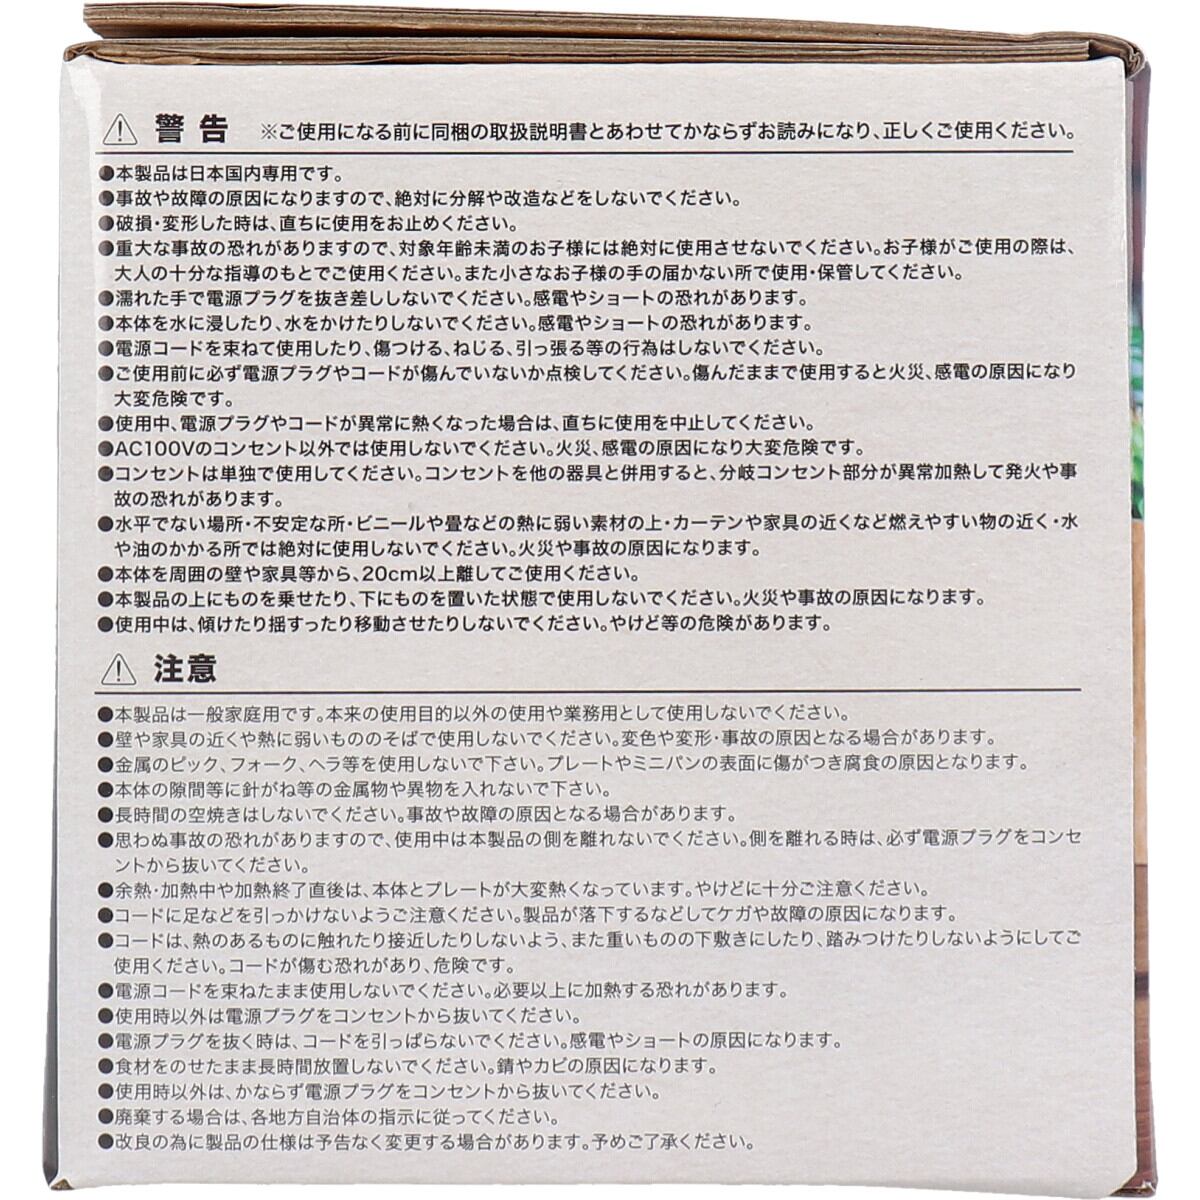 警告 ※ご使用になる前に同梱の取扱説明書とあわせてかならずお読みになり、正しくご使用ください。
●本製品は日本国内専用です。
●事故や故障の原因になりますので、絶対に分解や改造などをしないでください。
●破損・変形した時は、直ちに使用をお止めください。
●重大な事故の恐れがありますので、対象年齢未満のお子様には絶対に使用させないでください。お子様がご使用の際は、
大人の十分な指導のもとでご使用ください。また小さなお子様の手の届かない所で使用・保管してください。
●濡れた手で電源プラグを抜き差ししないでください。感電やショートの恐れがあります。
●本体を水に浸したり、水をかけたりしないでください。感電やショートの恐れがあります。
●電源コードを束ねて使用したり、傷つける、ねじる、引っ張る等の行為はしないでください。
●ご使用前に必ず電源プラグやコードが傷んでいないか点検してください。傷んだままで使用すると火災、感電の原因になり
大変危険です。
●使用中、電源プラグやコードが異常に熱くなった場合は、直ちに使用を中止してください。
●AC100Vのコンセント以外では使用しないでください。火災、感電の原因になり大変危険です。
●コンセントは単独で使用してください。コンセントを他の器具と併用すると、分岐コンセント部分が異常加熱して発火や事
故の恐れがあります。
●水平でない場所・不安定な所・ビニールや畳などの熱に弱い素材の上・カーテンや家具の近くなど燃えやすい物の近く・水
や油のかかる所では絶対に使用しないでください。火災や事故の原因になります。
●本体を周囲の壁や家具等から、20cm以上離してご使用ください。
●本製品の上にものを乗せたり、下にものを置いた状態で使用しないでください。火災や事故の原因になります。
●使用中は、傾けたり揺すったり移動させたりしないでください。やけど等の危険があります。
注意
●本製品は一般家庭用です。本来の使用目的以外の使用や業務用として使用しないでください。
●壁や家具の近くや熱に弱いもののそばで使用しないでください。変色や変形・事故の原因となる場合があります。
●金属のピック、フォーク、ヘラ等を使用しないで下さい。プレートやミニパンの表面に傷がつき腐食の原因となります。
●本体の隙間等に針がね等の金属物や異物を入れないで下さい。
●長時間の空焼きはしないでください。事故や故障の原因となる場合があります。
●思わぬ事故の恐れがありますので、使用中は本製品の側を離れないでください。側を離れる時は、必ず電源プラグをコンセ
ントから抜いてください。
●余熱・加熱中や加熱終了直後は、本体とプレートが大変熱くなっています。やけどに十分ご注意ください。
●コードに足などを引っかけないようご注意ください。製品が落下するなどしてケガや故障の原因になります。
●コードは、熱のあるものに触れたり接近したりしないよう、また重いものの下敷きにしたり、踏みつけたりしないようにしてご
使用ください。コードが傷む恐れがあり、危険です。
●電源コードを束ねたまま使用しないでください。必要以上に加熱する恐れがあります。
●使用時以外は電源プラグをコンセントから抜いてください。
●電源プラグを抜く時は、コードを引っぱらないでください。感電やショートの原因になります。
●食材をのせたまま長時間放置しないでください。錆やカビの原因になります。
●使用時以外は、かならず電源プラグをコンセントから抜いてください。
●廃棄する場合は、各地方自治体の指示に従ってください。
●改良の為に製品の仕様は予告なく変更する場合があります。予めご了承ください。